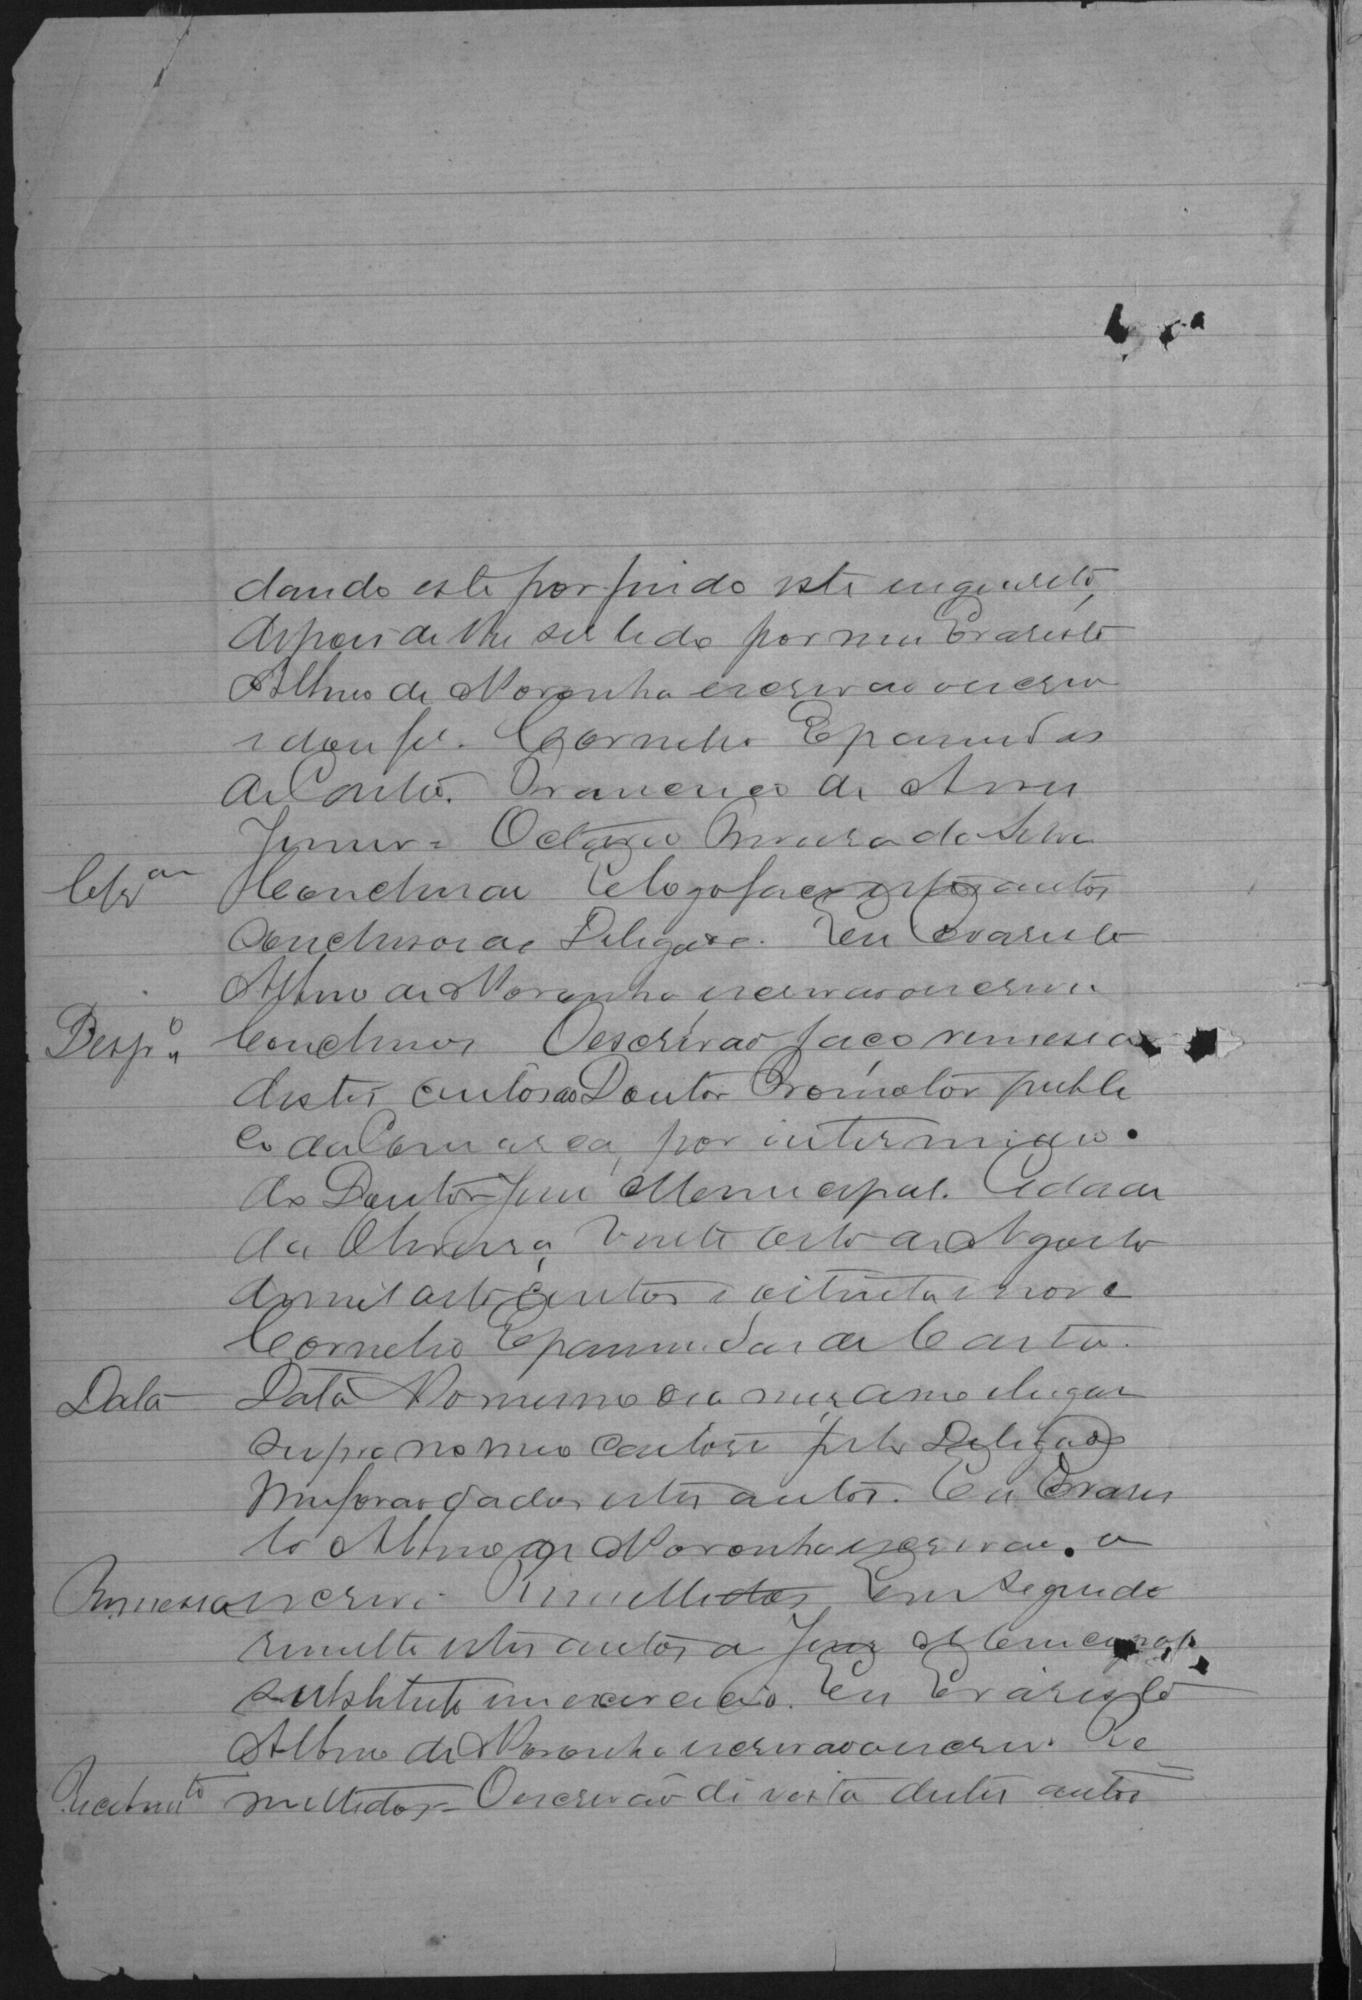 dando este por findo este inquerito,
depois de lhe ser lido por mim Evaristo
Albino de Noronha escrivão o escrevi
e dou fé. Cornelio Epaminondas
de Castro. Francisco de Assis
Junior = Octavio Moreira da Silva
Clsam Conclusão E logo faço estes autos
Conclusos ao Delegado. Eu Evaristo
Albino de Noronha escrivão o escrevi.
Despo Conclusos O escrivão faça remessa
destes autos ao Doutor Promotor publi
co da Comarca, por intermedio
do Doutor Juiz Municipal. Cidade
da Oliveira, vinte oito de Agosto
de mil oito centos e oitenta e nove
Cornelio Epaminondas de Castro.
Data Data No mesmo dia mez anno e lugar
supra no meo cartorio pelo Delegado
me forão dados estes autos. Eu Evaris
to Albino de Noronha escrivão o
Remessa escrevi. Remettidos Em seguida
remetto estes autos a Juiz Municipal
substituto em exercicio. Eu Evaristo
Albino de Noronha escrivão o escrevi. Re=
Recebimto mettidos = O escrivão dê vista destes autos